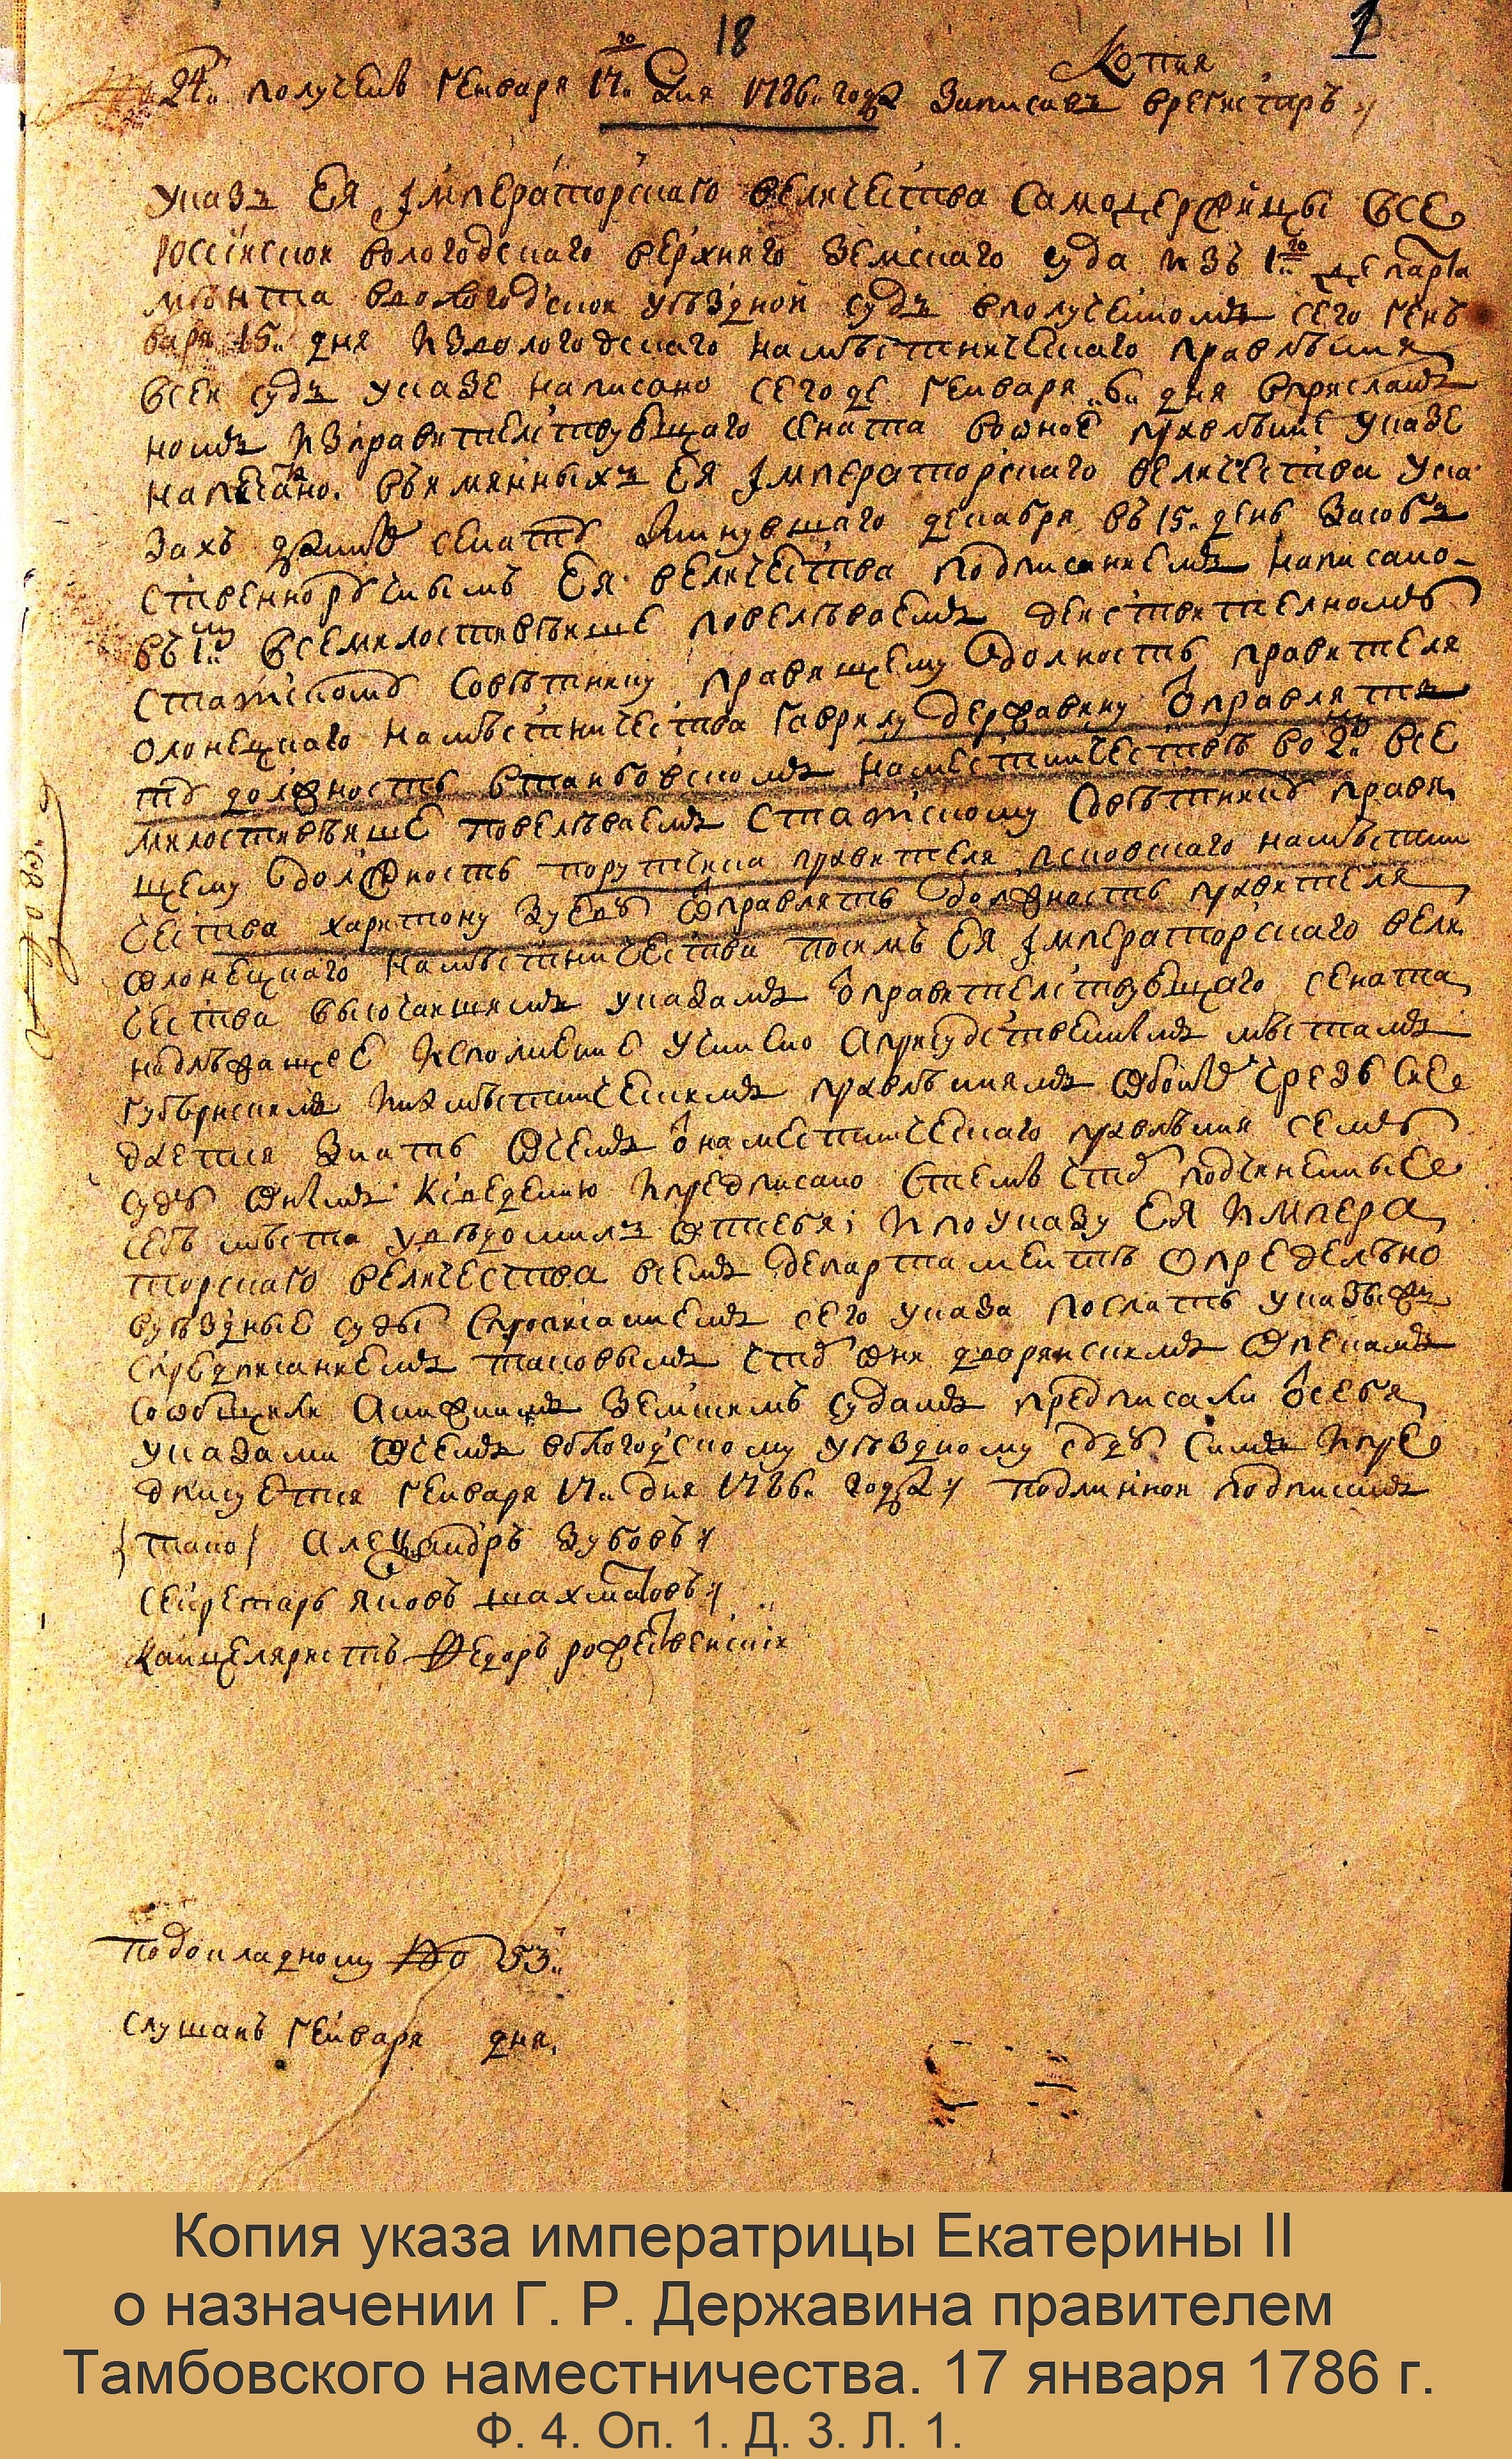 18
1
Копия
24. получен генваря 17го дня 1786. года Записав врегистаръ
Указъ Ея Императорскаго величества Самодержицы все
россиской вологодскаго верхняго земскаго суда изъ 1го департа
мѣнта ввологодской уѣздной судъ вполученномъ сего ген
варя 15. дня извологодскаго намѣстническаго правлѣния
всей судъ указе написано сегоде генваря 6. дня вприслан
номъ изправителствующаго сената воное правлѣние указе
написано. въимянныхъ Ея Императорскаго величества ука
захъ данных сенату минувшаго декабря въ 15. день засоб
ственноручным Ея величества подписаниемъ написано
въ 1м всемилостивѣише повелѣваемъ действителному
статскому Совѣтнику правящему должность правителя
олонецкаго намѣстничества гаврилу державину отправлять
ту должность втанбовскомъ наместничествѣ во 2м все
милостивѣише повелѣваемъ статскому Совѣтнику правя
щему должность порутчика правителя псковскаго намѣстни
чества харитону зуеву отправлять должность правителя
олонецкаго намѣстничества посимъ Ея Императорскаго вели
чества высочаишимъ указамъ отправителствующаго сената
надлѣжащее исполнение учинено априсудственнымъ мѣстамъ
губернскимъ инамѣстническимъ правлѣниямъ чрезъ сие
дается знать очемъ отнаместническаго правлѣния сему
суду ипредписано стем чтоб подчиненные
себѣ мѣста уведомилъ отсебя; ипоуказу Ея импера
торскаго величества всемъ департаментѣ определѣно
вуѣздные суды спрописаниемъ сего указа послать указы
спредписаниемъ таковымъ чтоб они дворянскимъ опекамъ
сообщили анижнимъ земскимъ судамъ предписали отсебя
указами очемъ вологодскому уѣздному суду симъ ипре
дписуется генваря 17. дня 1786. года подлинной подписанъ
тако Александръ зубовъ
секретарь яковъ шахматовъ
канцеляристъ федоръ рожественский
подокладному No 53.
слушанъ генваря дня
Копия указа императрицы Екатерины II
о назначении Г. Р. Державина правителем
Тамбовского наместничества. 17 января 1786 г.
Ф. 4. Оп. 1. Д. 3. Л. 1.